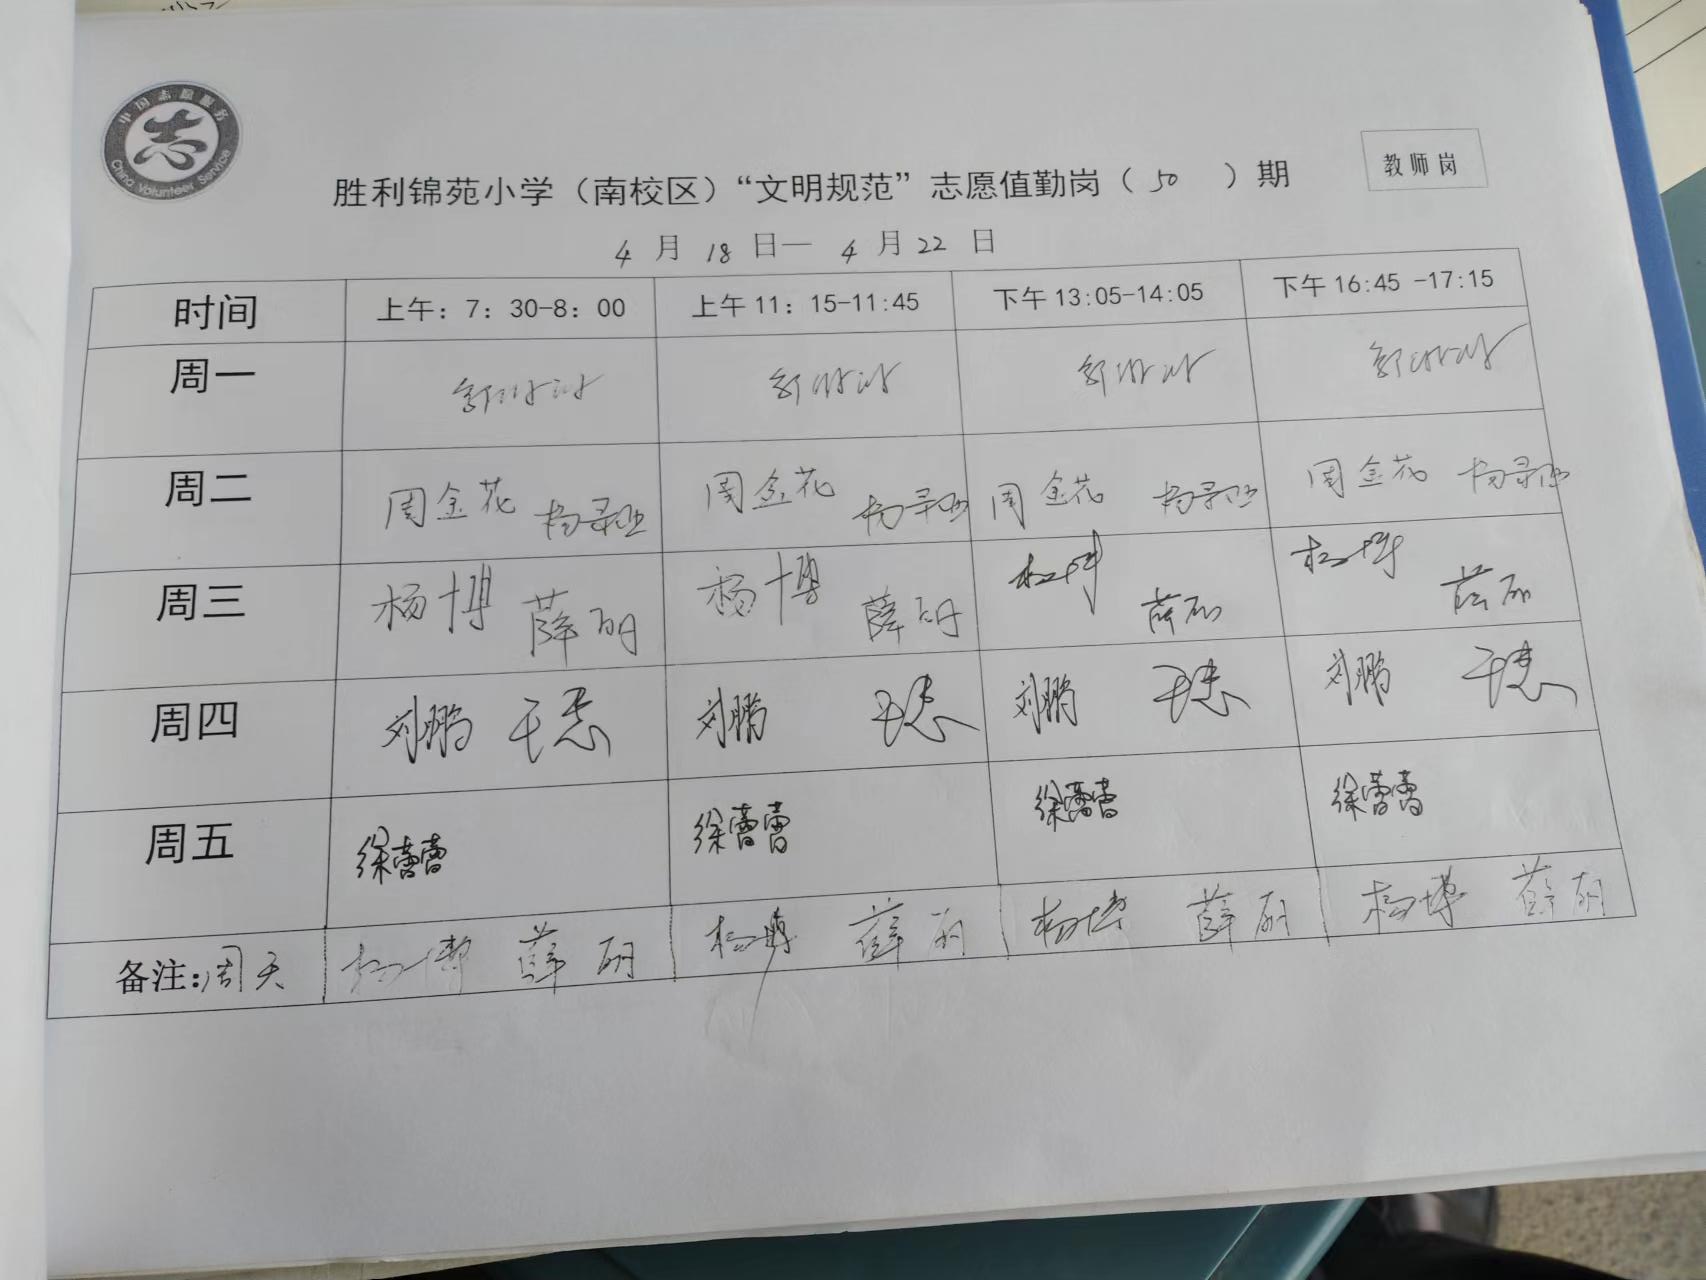 中国志愿服务
志
China Volunteer Service
教师岗
胜利锦苑小学（南校区）“文明规范”志愿值勤岗（50 ）期
4月18日—4月22日
时间 上午：7：30-8：00 上午11：15-11:45 下午13:05-14:05 下午16:45 -17:15
周一
周二 周金花 周金花 周金花 周金花
周三 杨博 薛 杨博 薛 杨博 薛 杨博 薛
周四 刘鹏 刘鹏 刘鹏 刘鹏
周五 徐蕾蕾 徐蕾蕾 徐蕾蕾 徐蕾蕾
备注：周天 杨博 薛 杨博 薛 杨博 薛 杨博 薛